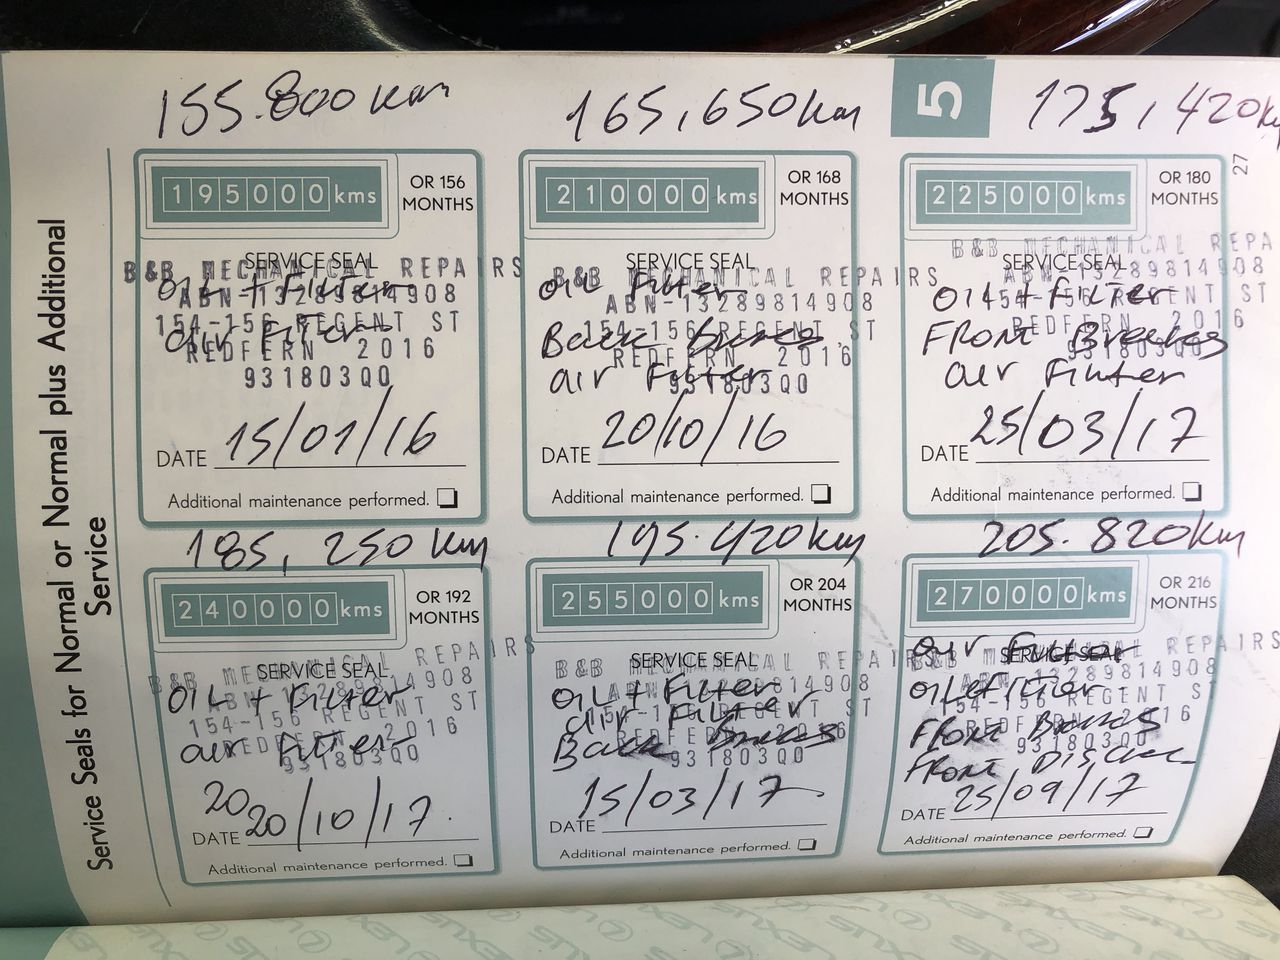 155.800 km
165,650 km
5
175,420 km
27
Service Seals for Normal or Normal plus Additional
Service
195000 kms
OR 156
MONTHS
SERVICE SEAL
B&B MECHANICAL REPAIRS
OIL + Filter
ABN-13289814908
154-156 REGENT ST
air Filter
REDFERN 2016
93180300
DATE 15/01/16
Additional maintenance performed.
210000 kms
OR 168
MONTHS
SERVICE SEAL
B&B MECHANICAL REPAIRS
OIL Filter
ABN-13289814908
154-156 REGENT ST
Back
REDFERN 2016
air Filter
93180300
DATE 20/10/16
Additional maintenance performed.
225000 kms
OR 180
MONTHS
B&B MECHANICAL REPA
SERVICE SEAL
ABN-13289814908
OIL + Filter
154-156 REGENT ST
REDFERN 2016
FRONT Breakes
93180300
air Filter
DATE 25/03/17
Additional maintenance performed.
185,250 km
195.420 km
205.820 km
240000 kms
OR 192
MONTHS
B&B MECHANICAL REPAIRS
SERVICE SEAL
ABN-13289814908
OIL + Filter
154-156 REGENT ST
REDFERN 2016
air Filter
93180300
20
DATE 20/10/17.
Additional maintenance performed.
255000 kms
OR 204
MONTHS
B&B MECHANICAL REPAIRS
SERVICE SEAL
OIL + Filter
ABN-13289814908
154-156 REGENT ST
air Filter
REDFERN 2016
Back
93180300
DATE 15/03/17
Additional maintenance performed.
270000 kms
OR 216
MONTHS
air Filter
B&B MECHANICAL REPAIRS
SERVICE SEAL
ABN-13289814908
OIL + Filter
154-156 REGENT ST
REDFERN 2016
Front
93180300
FRONT
DATE 25/09/17
Additional maintenance performed.
LEXUS LEXUS LEXUS LEXUS